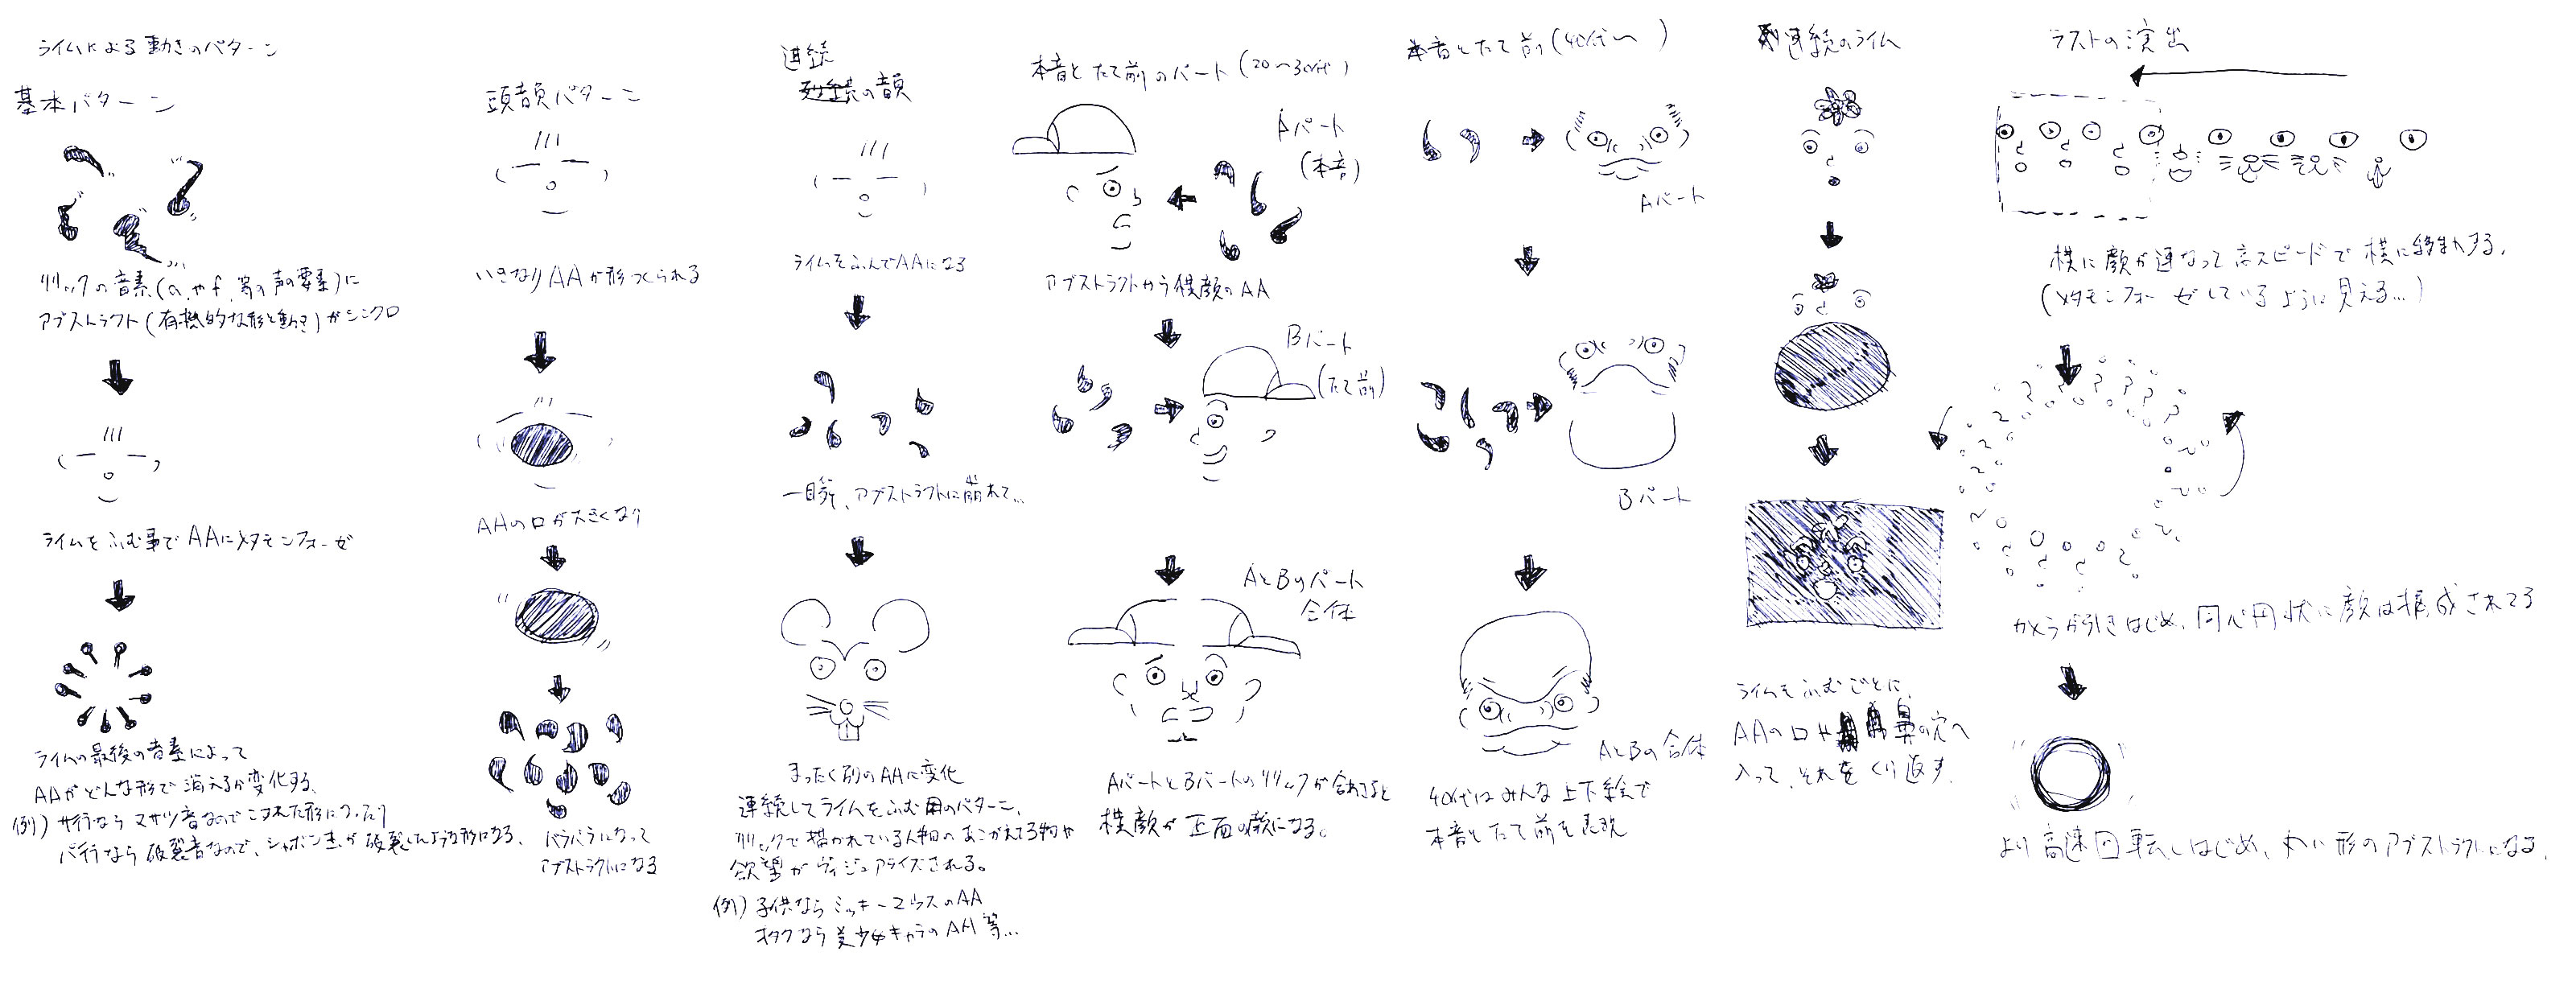 ライムによる動きのパターン
基本パターン
リリックの音素(a.やf.等の声の要素)に
アブストラクト(有機的な形と動き)がシンクロ
ライムをふむ事でAAにメタモンフォーゼ
ライムの最後の音素によって
AAがどんな形で消えるか変化する、
例)サ行ならマサツ音なのでこすれた形になったり
パ行なら破裂音なので、シャボン玉が破裂したような形になる、
頭韻パターン
いきなりAAが形つくられる
AAの口が大きくなり
バラバラになって
アブストラクトになる
連続
の韻
ライムをふんでAAになる
一瞬、アブストラクトに崩れて…
まったく別のAAに変化
連続してライムをふむ用のパターン、
リリックで描かれている人物のあこがれてる物や
欲望がヴィジュアライズされる。
例)子供ならミッキーマウスのAA
オタクなら美少女キャラのAA等…
本音とたて前のパート(20〜30代)
Aパート
(本音)
アブストラクトから横顔のAA
Bパート
(たて前)
AとBのパート
合体
AパートとBパートのリリックが合わさると
横顔が正面の顔になる。
本音とたて前(40代〜)
Aパート
Bパート
AとBの合体
40代はみんな上下絵で
本音とたて前を表現
連続のライム
ライムをふむごとに、
AAの口や鼻の穴へ
入って、それをくり返す
ラストの演出
横に顔が連なって高スピードで横に移動する、
(メタモンフォーゼしているように見える…)
カメラが引きはじめ、同心円状に顔は構成されてる
より高速回転しはじめ、わに形のアブストラクトになる、